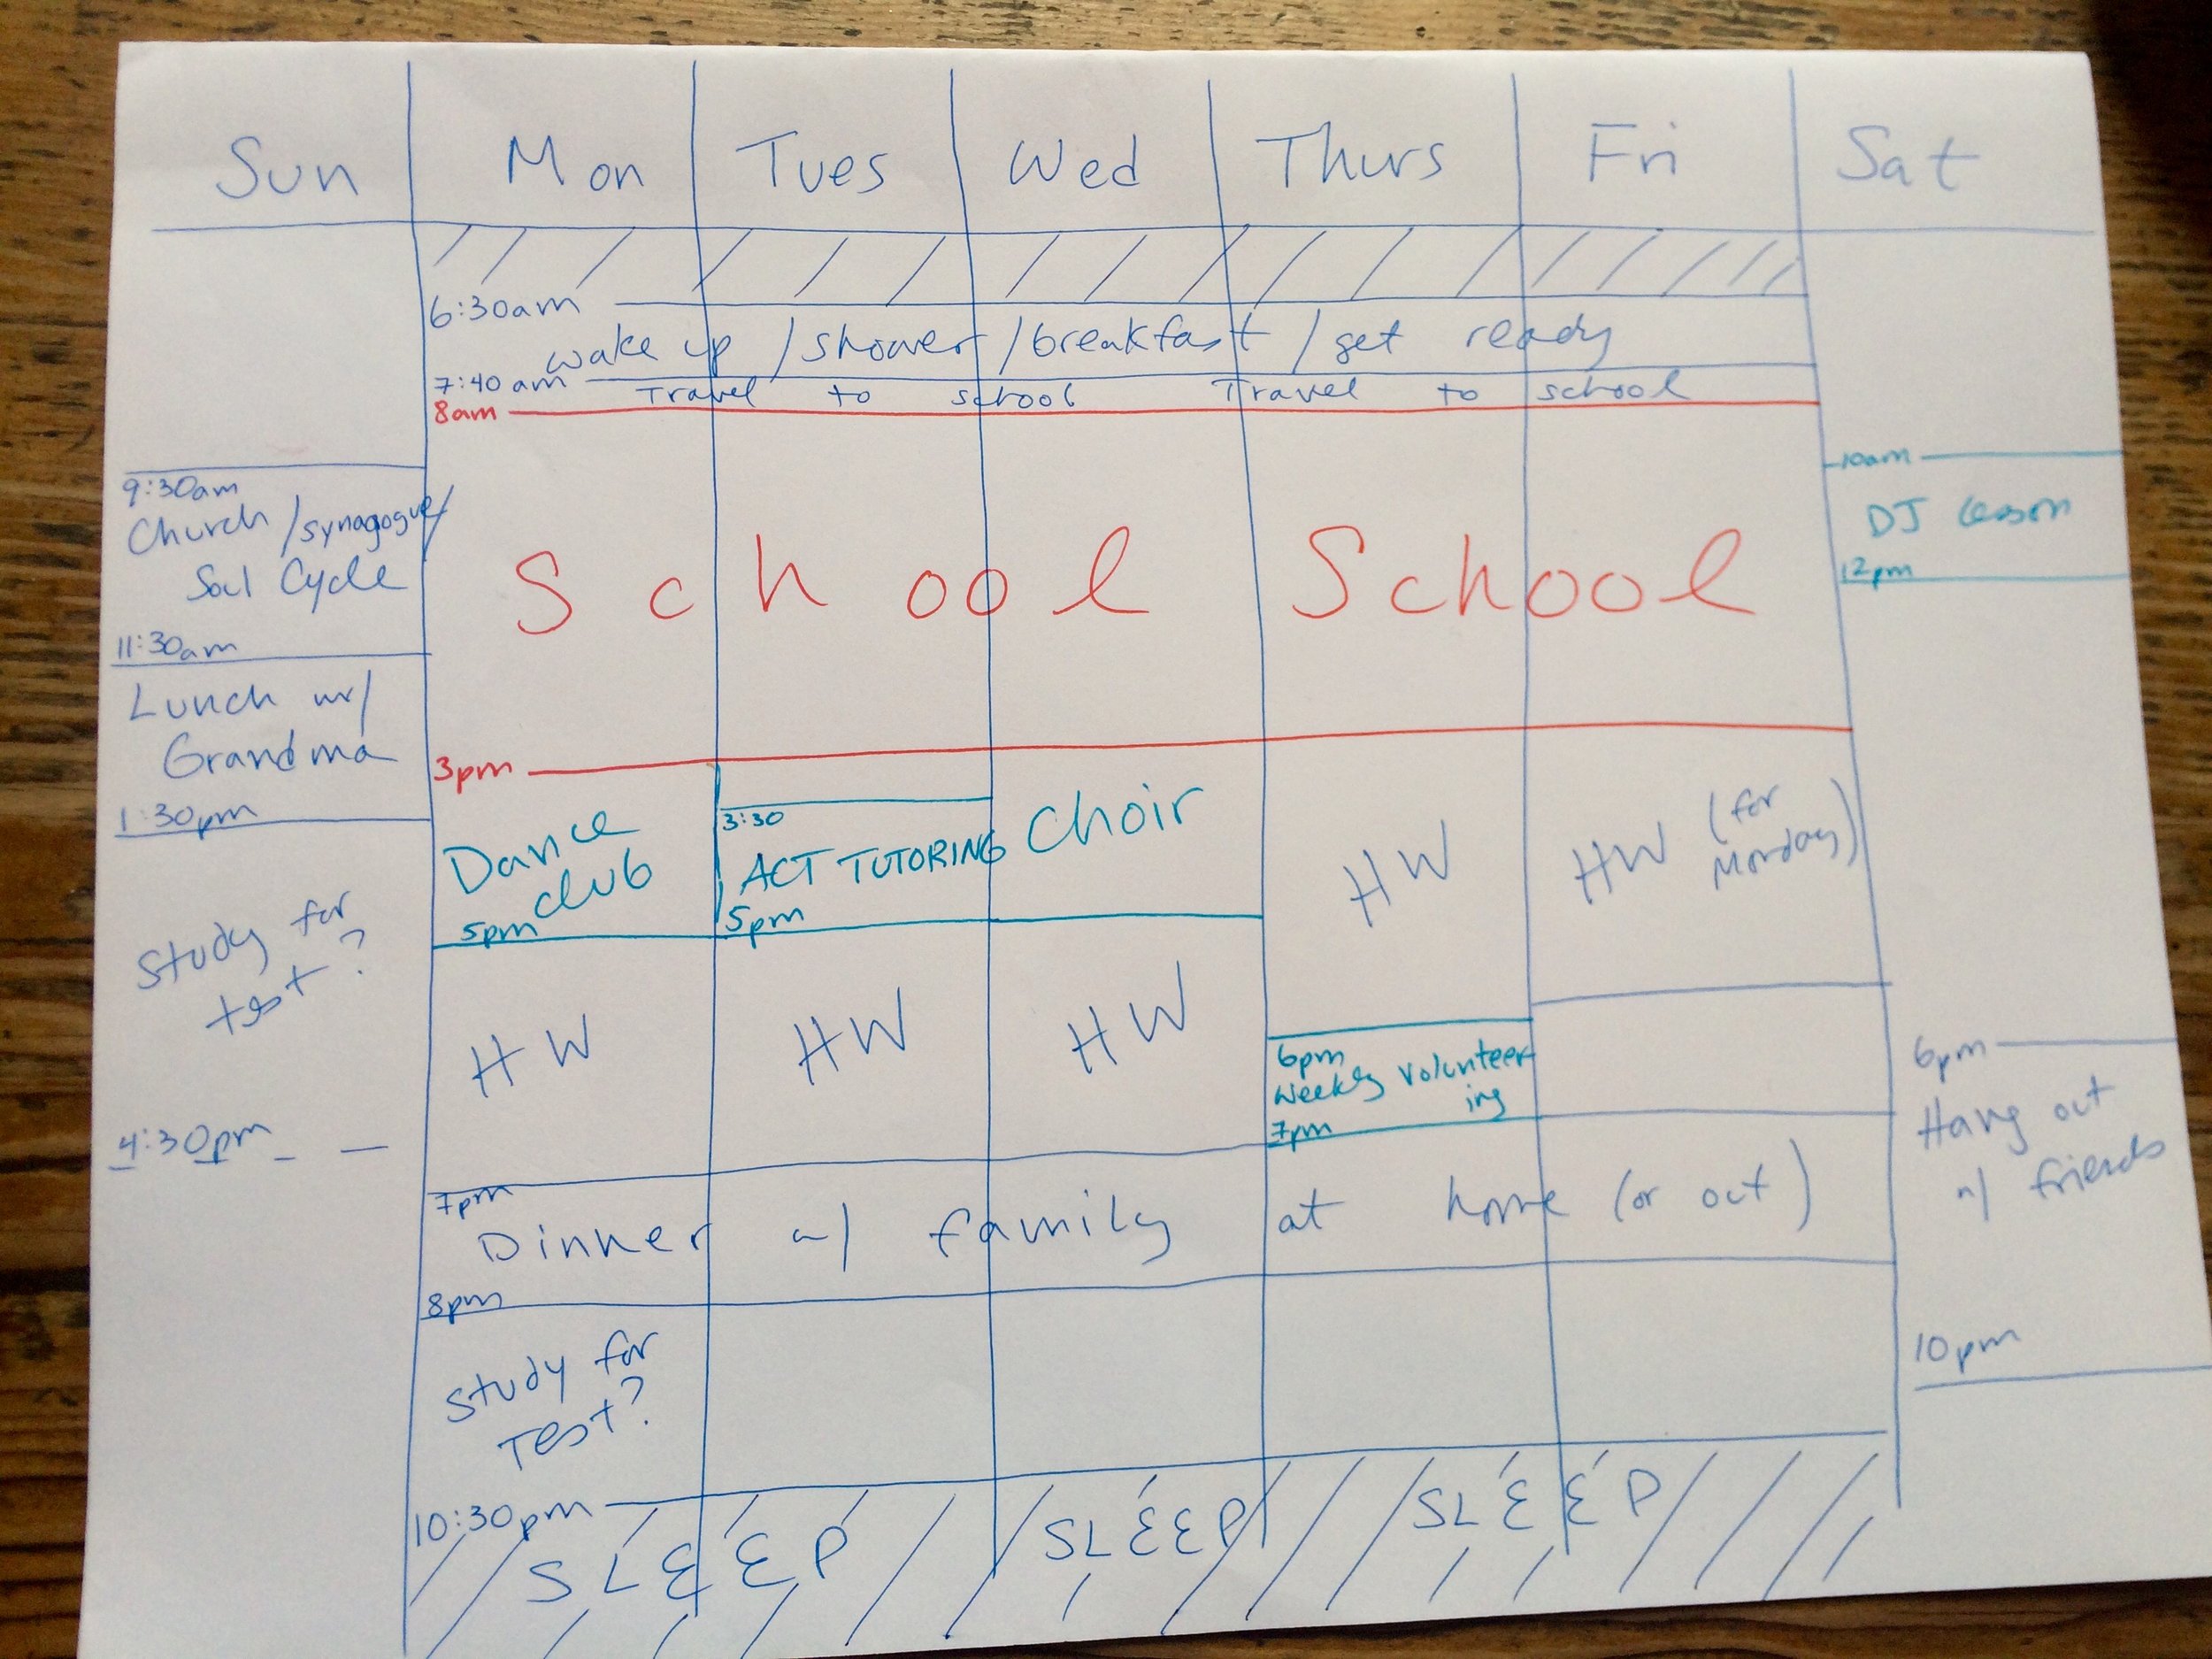 Sun Mon Tues Wed Thurs Fri Sat
6:30am
wake up / shower / breakfast / get ready
7:40 am Travel to school Travel to school
8am
9:30am
Church / synagogue /
Soul Cycle
11:30am
Lunch w/
Grandma
1:30pm
Study for
test?
4:30pm
School School
3pm
Dance
club
5pm
3:30
ACT TUTORING
5pm
Choir
HW
HW (for
Monday)
HW HW HW
6pm
Weekly volunteer
ing
7pm
7pm
Dinner w/ family at home (or out)
8pm
Study for
Test?
10:30pm
SLEEP SLEEP SLEEP
10am
DJ lesson
12pm
6pm
Hang out
w/ friends
10pm